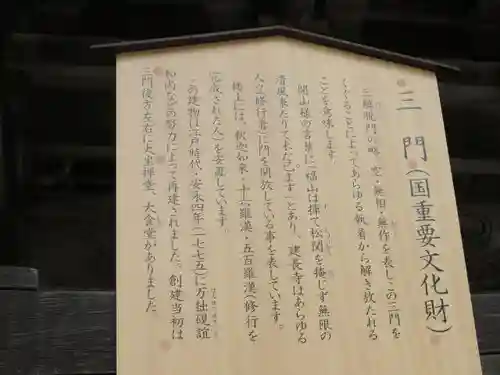 三門（国重要文化財）
三解脱門の略。空・無相・無作を表しこの三門を
くぐることによってあらゆる執着から解き放たれる
ことを意味します。
開山様の言葉に「福山は揮て松関を掩じず無限の
清風来たりて未だ已まず」とあり、建長寺はあらゆる
人々（修行者）に門を開放している事を表しています。
楼上には、釈迦如来・十六羅漢・五百羅漢（修行を
完成された人）を安置しています。
この建物は江戸時代・安永四年（一七七五）に万拙碩誼
ばんせつせきぎ
和尚などの努力によって再建されました。創建当初は
三門後方左右に大坐禅堂、大食堂がありました。